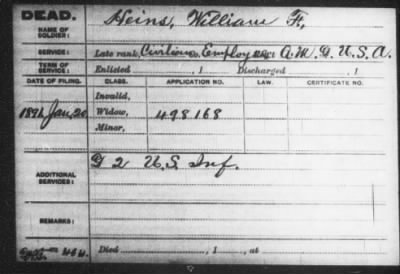 DEAD.
NAME OF SOLDIER: Heins, William F.
SERVICE: Late rank, Civilian Employee, Q. M. D. U. S. A.
TERM OF SERVICE: Enlisted , 1 Discharged , 1
DATE OF FILING. CLASS. APPLICATION NO. LAW. CERTIFICATE NO.
Invalid,
1892 Jan. 20 Widow, 498168
Minor,
ADDITIONAL SERVICES: G 2 U.S. Inf.
REMARKS:
Died , 1 , at